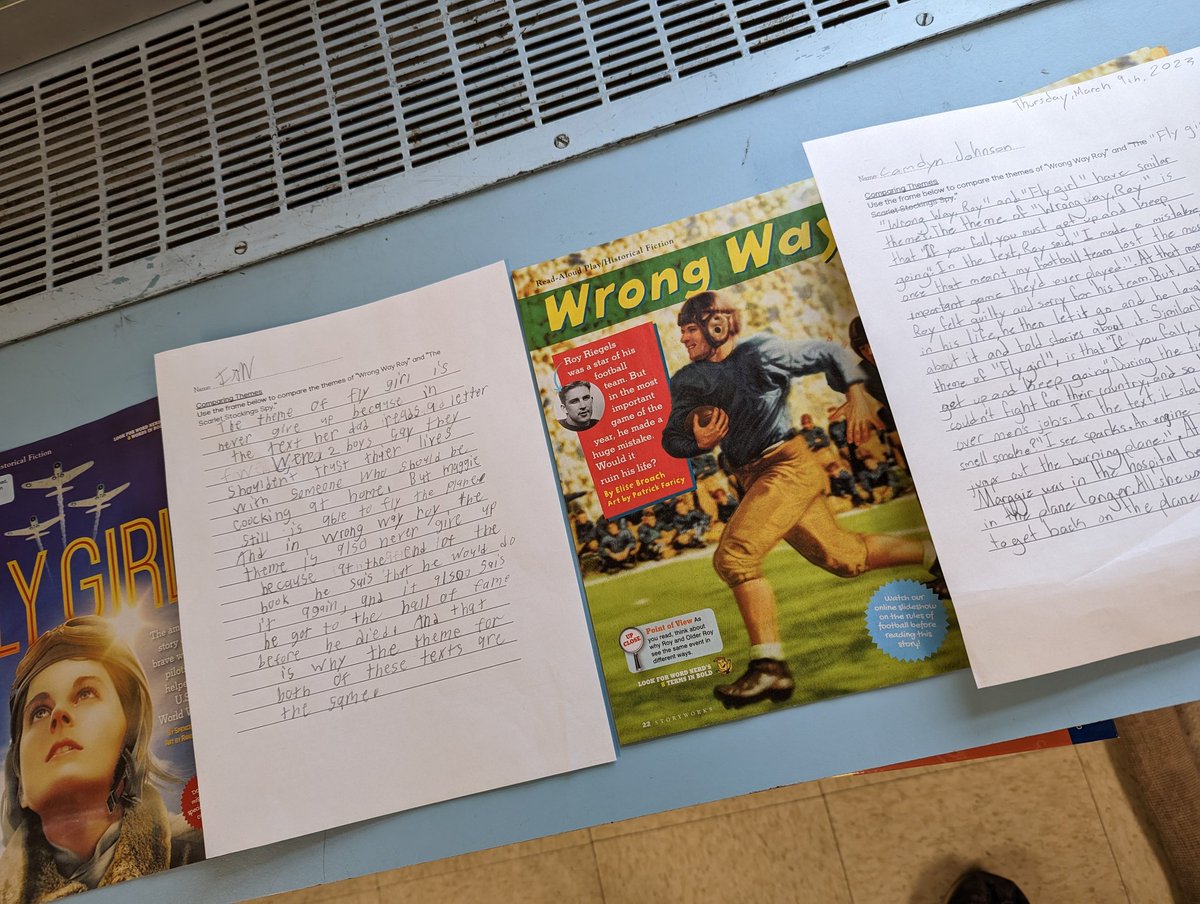 LOOK FOR WORD NERD'S
8 WORDS IN BOLD
Historical Fiction
LY GIRL
The am
story
brave w
pilot
helpe
U.S
World W
BY SPENC
ART BY RAN
Name: IAN
Comparing Themes
Use the frame below to compare the themes of "Wrong Way Roy" and "The
Scarlet Stockings Spy."
The theme of fly girl is
never give up because in
the text her dad reads a letter
Were 2 boys say they
shouldent trust thyer lives
with someone who should be
coocking at home. But maggie
still is able to fly the plane.
And in wrong way Roy the
theme is also never give up
because at the end of the
book he sais that he would do
it again, and it also sais
he got to the hall of fame
before he died. And that
is why the theme for
both of these texts are
the same.
Read-Aloud Play/Historical Fiction
Wrong Way
Roy Riegels
was a star of his
football
team. But
in the most
important
game of the
year, he made a
huge mistake.
Would it
ruin his life?
By Elise Broach
Art by Patrick Faricy
UP CLOSE
Point of View As
you read, think about
why Roy and Older Roy
see the same event in
different ways.
LOOK FOR WORD NERD'S
8 TERMS IN BOLD
22 STORYWORKS
Watch our
online slideshow
on the rules of
football before
reading this
story!
Thursday, March 9th, 2023
Name: Camdyn Johnson
Comparing Themes
Use the frame below to compare the themes of "Wrong Way Roy" and "The "Fly gir
Scarlet Stockings Spy."
"Wrong Way, Roy" and "Fly girl" have smilar
themes. The theme of "Wrong way, Roy" is
that "If you fall, you must get up and keep
going" In the text, Roy said, "I made a mistake
once that meant my football team lost the mos
important game they'd ever played" At that mom
Roy felt guilty and sorry for his team. But, lat
in his life, he then let it go and he laug
about it and talk stories about it. Similar
theme of "Fly girl" is that "If you fall, y
get up and keep going" During the time
couldn't fight for their country, and so
over men's jobs. In the text, it stat
smell smoke?" "I see sparks. An engine
your out the burning plane." At
Maraggie was in the hospital be
in the plane longer. All showe
to get back on the plane